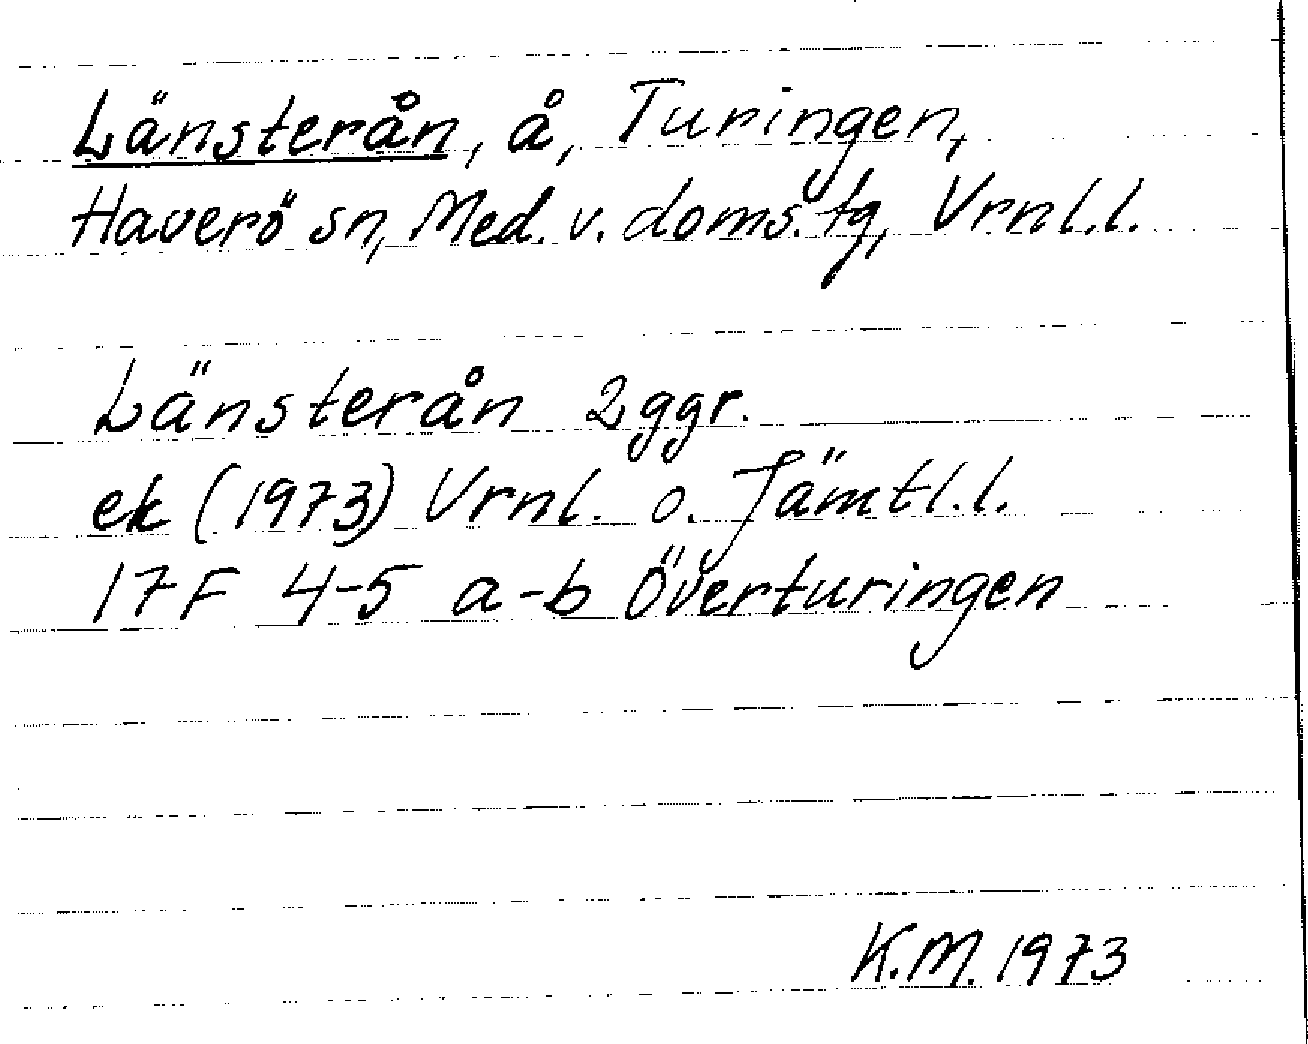 Länsterån, å, Turingen,
Haverö sn, Med. v. doms. tg, Vrnl.l.
Länsterån 2ggr.
ek (1973) Vrnl. o. Jämtl.l.
17F 4-5 a-b Överturingen
K.M. 1973